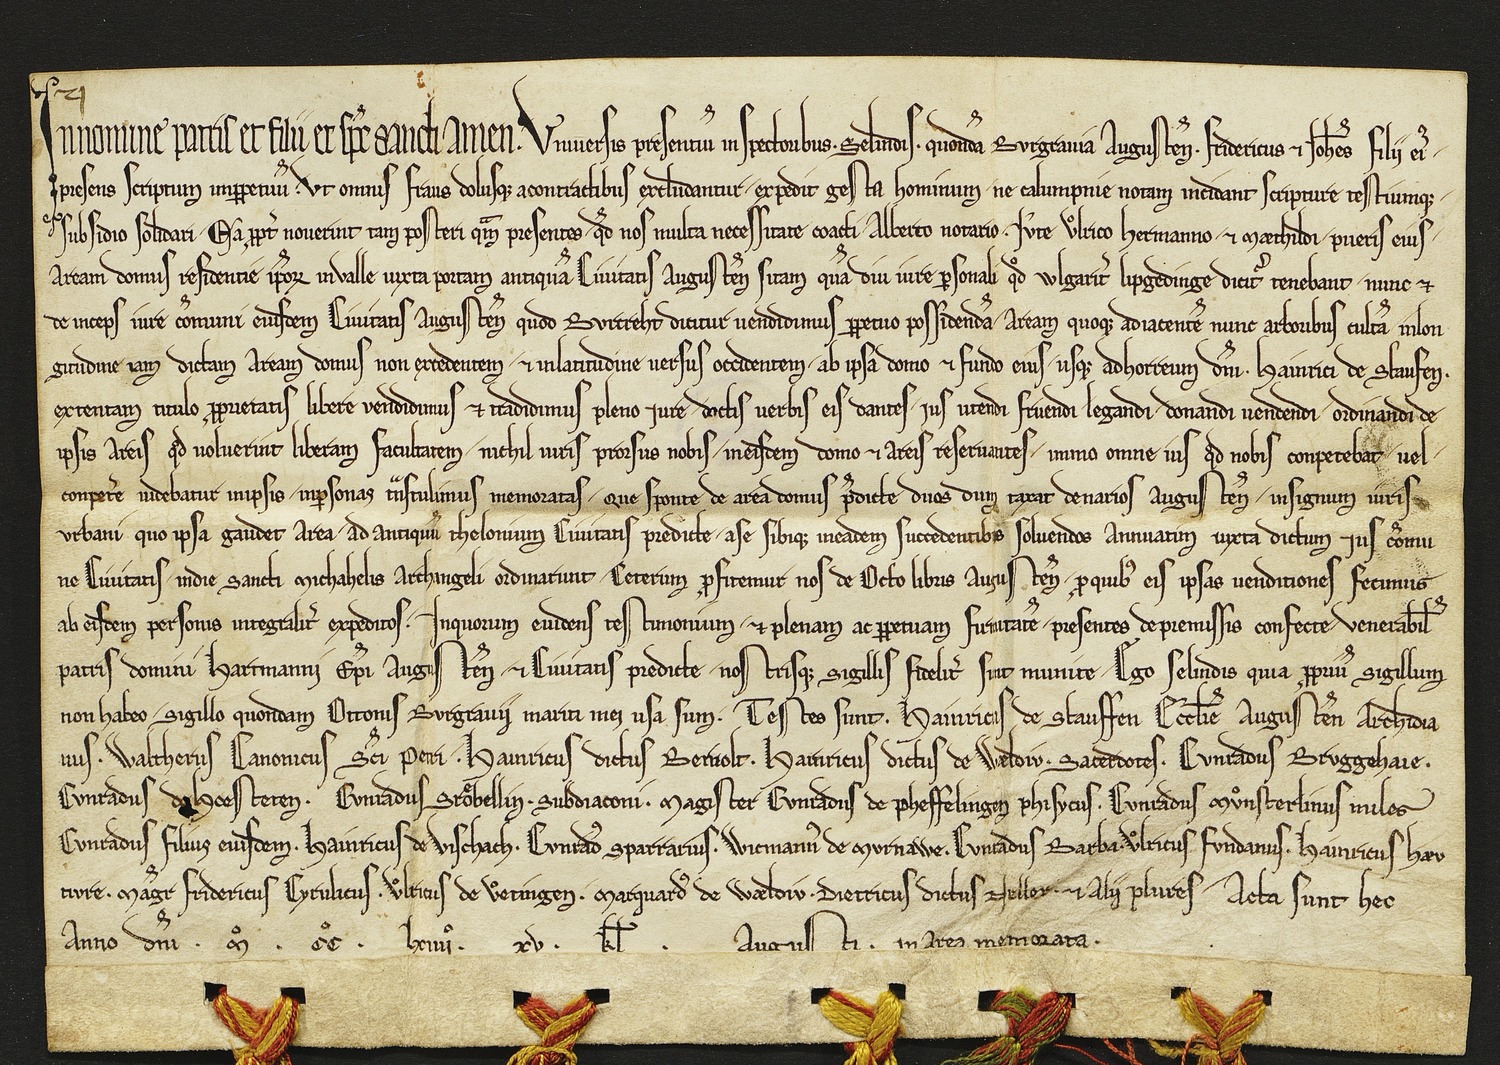 In nomine patris et filii et spc sancti amen. Vniuersis presentiu inspectoribus. Selindis. quonda Burgrauia Augusten. Fridericus ⁊ Johes filij ei
presens scriptum imppetuu. Vt omnis fraus dolusq; a contractibus excludantur expedit gesta hominum ne calumpnie notam incidant scripture testiumq;
subsidio solidari. Ea ppt nouerint tam posteri qm presentes qd nos multa necessitate coacti Alberto notario. Jvte Vlrico hermanno ⁊ Mæthildi pueris eius
Aream domus residentie ipor in valle iuxta portam antiqua Ciuitatis Augusten sitam qua diu iure psonali qd wlgarit lipgedinge dicit tenebant nunc ⁊
de inceps iure comuni eiusdem Ciuitatis Augusten quod Burtreht dicitur uendidimus ppetuo possidenda Aream quoq; adiacente nunc arboribus culta in lon
gitudine iam dictam Aream domus non excedentem ⁊ in latitudine uersus occidentem ab ipsa domo ⁊ fundo eius usq; ad horreum dni. Hainrici de Staufen.
extentam titulo pprietatis libere vendidimus ⁊ tradidimus pleno iure dictis uerbis eis dantes ius utendi fruendi legandi donandi uendendi ordinandi de
ipsis Areis qd uoluerint liberam facultatem nichil iuris prorsus nobis in eisdem domo ⁊ Areis reseruantes immo omne ius qd nobis conpetebat uel
conpete uidebatur in ipsis in psonas tnstulimus memoratas que sponte de area domus pdicte duos dum taxat denarios Augusten in signum iuris
vrbani quo ipsa gaudet Area Ad antiquu thelonium Ciuitatis predicte a se sibiq; in eadem succedentibs soluendos Annuatim iuxta dictum ius comu
ne Ciuitatis in die sancti Michahelis Archngeli ordinarunt. Ceterum pfitemur nos de Octo libris Augusten p quib eis ipsas uenditiones fecimus
ab eisdem personis integralit expeditos. In quorum euidens testimonium ⁊ plenam ac ppetuam firmitate presentes de premissis confecte venerabil
patris domini Hartmanni Epi Augusten ⁊ Ciuitatis predicte nostrisq; sigillis fidelit sint munite. Ego selindis quia ppriu sigillum
non habeo sigillo quondam Ottonis Burgrauij mariti mei usa sum. Testes sunt. Hainricus de Stauffen Ecclie Augusten Archidia
nus. Waltherus Canonicus Sci Petri. Hainricus dictus Bertolt. Hainricus dictus de Wældiv. Sacerdotes. Cunradus Bruggehaie.
Cunradus de Hoesteten. Cunradus Strobellin. subdiaconi. Magister Cunradus de Pheffelingen phisycus. Cunradus Munsterlinus miles
Cunradus filius eiusdem. Hainricus de Vischach. Cunrad sparrarius. Witmann de Mvrnawe. Cunradus Barba. Vlricus fundanus. Hainricus hær
tivre. Magr Fridericus Cytulacus. Vlricus de Vetingen. Marquard de Wældiv. Dietricus dictus Zeller. ⁊ Alij plures Acta sunt hec
Anno dni. M. CC. lxiiii. xv. kl. Augusti. in Area memorata.